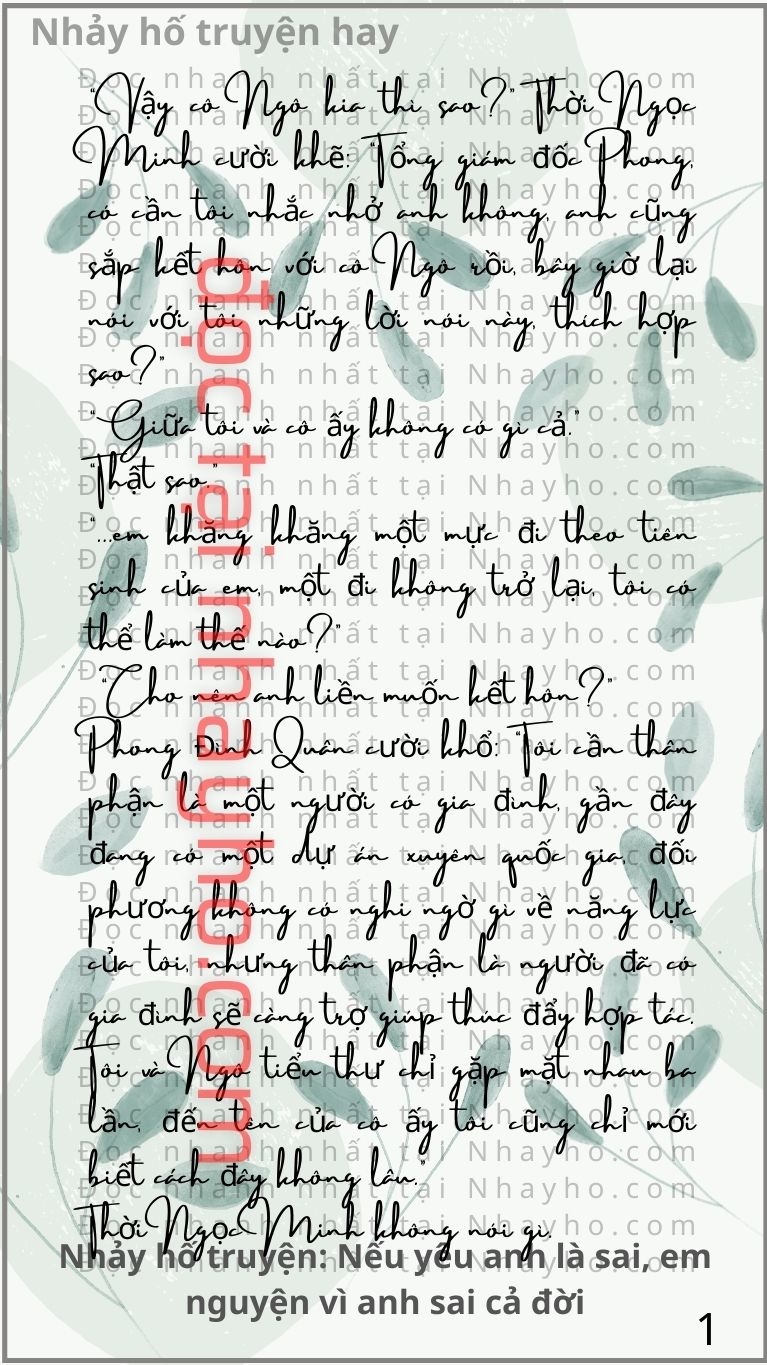 Nhảy hố truyện hay
“Vậy cô Ngô kia thì sao?” Thời Ngọc
Minh cười khẽ: “Tổng giám đốc Phong,
có cần tôi nhắc nhở anh không, anh cũng
sắp kết hôn với cô Ngô rồi, bây giờ lại
nói với tôi những lời nói này, thích hợp
sao?”
“Giữa tôi và cô ấy không có gì cả.”
“Thật sao.”
“...em khăng khăng một mực đi theo tiên
sinh của em, một đi không trở lại, tôi có
thể làm thế nào?”
“Cho nên anh liền muốn kết hôn?”
Phong Đình Quân cười khổ: “Tôi cần thân
phận là một người có gia đình, gần đây
đang có một dự án xuyên quốc gia, đối
phương không có nghi ngờ gì về năng lực
của tôi, nhưng thân phận là người đã có
gia đình sẽ càng trợ giúp thúc đẩy hợp tác.
Tôi và Ngô tiểu thư chỉ gặp mặt nhau ba
lần, đến tên của cô ấy tôi cũng chỉ mới
biết cách đây không lâu.”
Thời Ngọc Minh không nói gì.
đọc tại nhayho.com
Nhảy hố truyện: Nếu yêu anh là sai, em
nguyện vì anh sai cả đời
1
Đọc nhanh nhất tại Nhayho.com